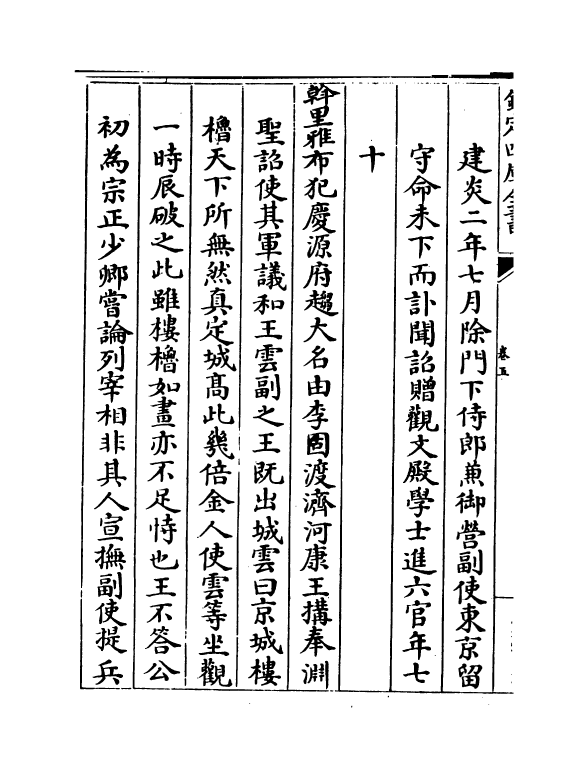 欽定四庫全書
卷五
建炎二年七月除門下侍郎兼御營副使東京留
守命未下而訃聞詔贈觀文殿學士進六官年七
十
斡里雅布犯慶源府趨大名由李固渡濟河康王搆奉淵
聖詔使其軍議和王雲副之王既出城雲曰京城樓
櫓天下所無然真定城髙此㡬倍金人使雲等坐觀
一時辰破之此雖樓櫓如畫亦不足恃也王不答公
初為宗正少卿嘗論列宰相非其人宣撫副使提兵